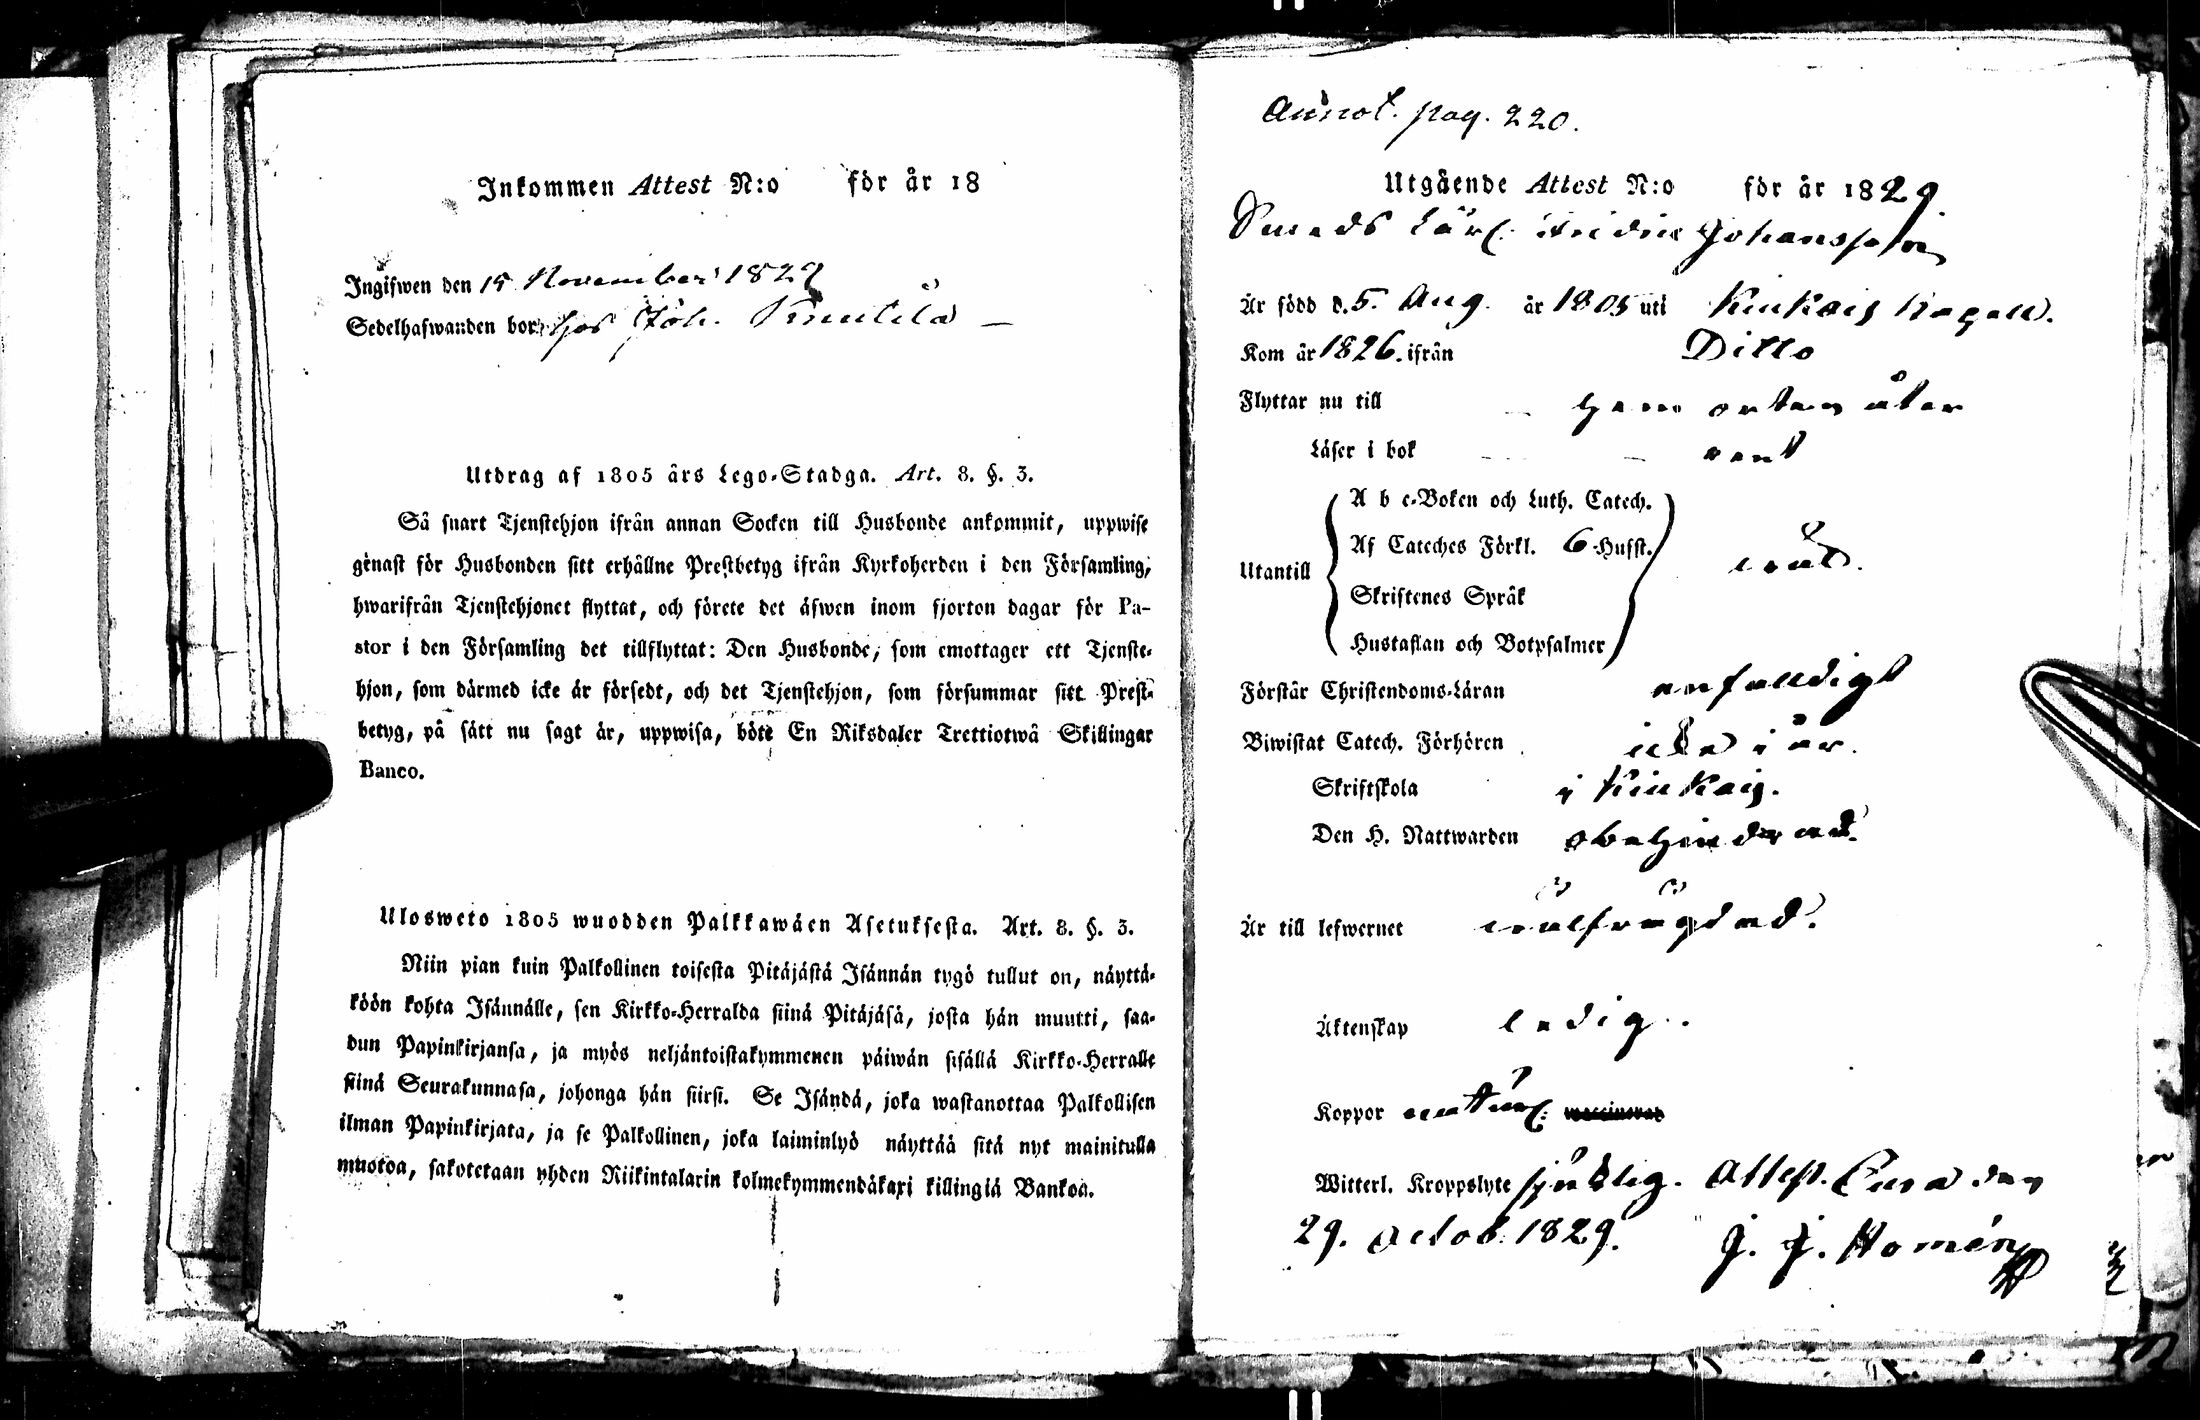 Inkommen Attest N:o för år 18
Ingifwen den 15 November 1829
Sedelhafwanden bor hos Joh. Knutila
Utdrag af 1805 års Lego-Stadga. Art. 8. §. 3.
Så snart Tjenstehjon ifrån annan Socken till Husbonde ankommit, uppwise
genast för Husbonden sitt erhållne Prestbetyg ifrån Kyrkoherden i den Församling,
hwarifrån Tjenstehjonet flyttat, och förete det äfwen inom fjorton dagar för Pa-
stor i den Församling det tillflyttat: Den Husbonde, som emottager ett Tjenste-
hjon, som därmed icke är försedt, och det Tjenstehjon, som försummar sitt Prest-
betyg, på sätt nu sagt är, uppwisa, böte En Riksdaler Trettiotwå Skillingar
Banco.
Ulosweto 1805 wuodden Palkkawäen Asetuksesta. Art. 8. §. 3.
Niin pian kuin Palkollinen toisesta Pitäjästä Isännän tygö tullut on, näyttä-
köön kohta Isännälle, sen Kirkko-Herralda siinä Pitäjäsä, josta hän muutti, saa-
dun Papinkirjansa, ja myös neljäntoistakymmenen päiwän sisällä Kirkko-Herralle
siinä Seurakunnasa, johonga hän siirsi. Se Isändä, joka wastanottaa Palkollisen
ilman Papinkirjata, ja se Palkollinen, joka laiminlyö näyttää sitä nyt mainitulla
muotoa, sakotetaan yhden Riikintalarin kolmekymmendäkaxi killingiä Bankoa.
Annot. pag. 220.
Utgående Attest N:o för år 1829.
Smeds Lärl. Johansson
Är född d. 5. Aug. år 1805 uti Kiukais Kapell.
Kom år 1826. ifrån Ditto
Flyttar nu till hemorten åter
Läser i bok rent
Utantill
A b c-Boken och Luth. Catech.
Af Cateches Förkl. 6 Hufst.
Skriftenes Språk
Hustaflan och Botpsalmer
wäl.
Förstår Christendoms-Läran enfaldigt
Biwistat Catech. Förhören icke i år.
Skriftskola i Kiukais.
Den H. Nattwarden obehindrad.
Är till lefwernet wälfrägdad.
Äktenskap ledig.
Koppor naturl. vaccinerad
Witterl. Kroppslyte sjuklig. Attest. Eura den
29. Octob. 1829. J. J. Homén